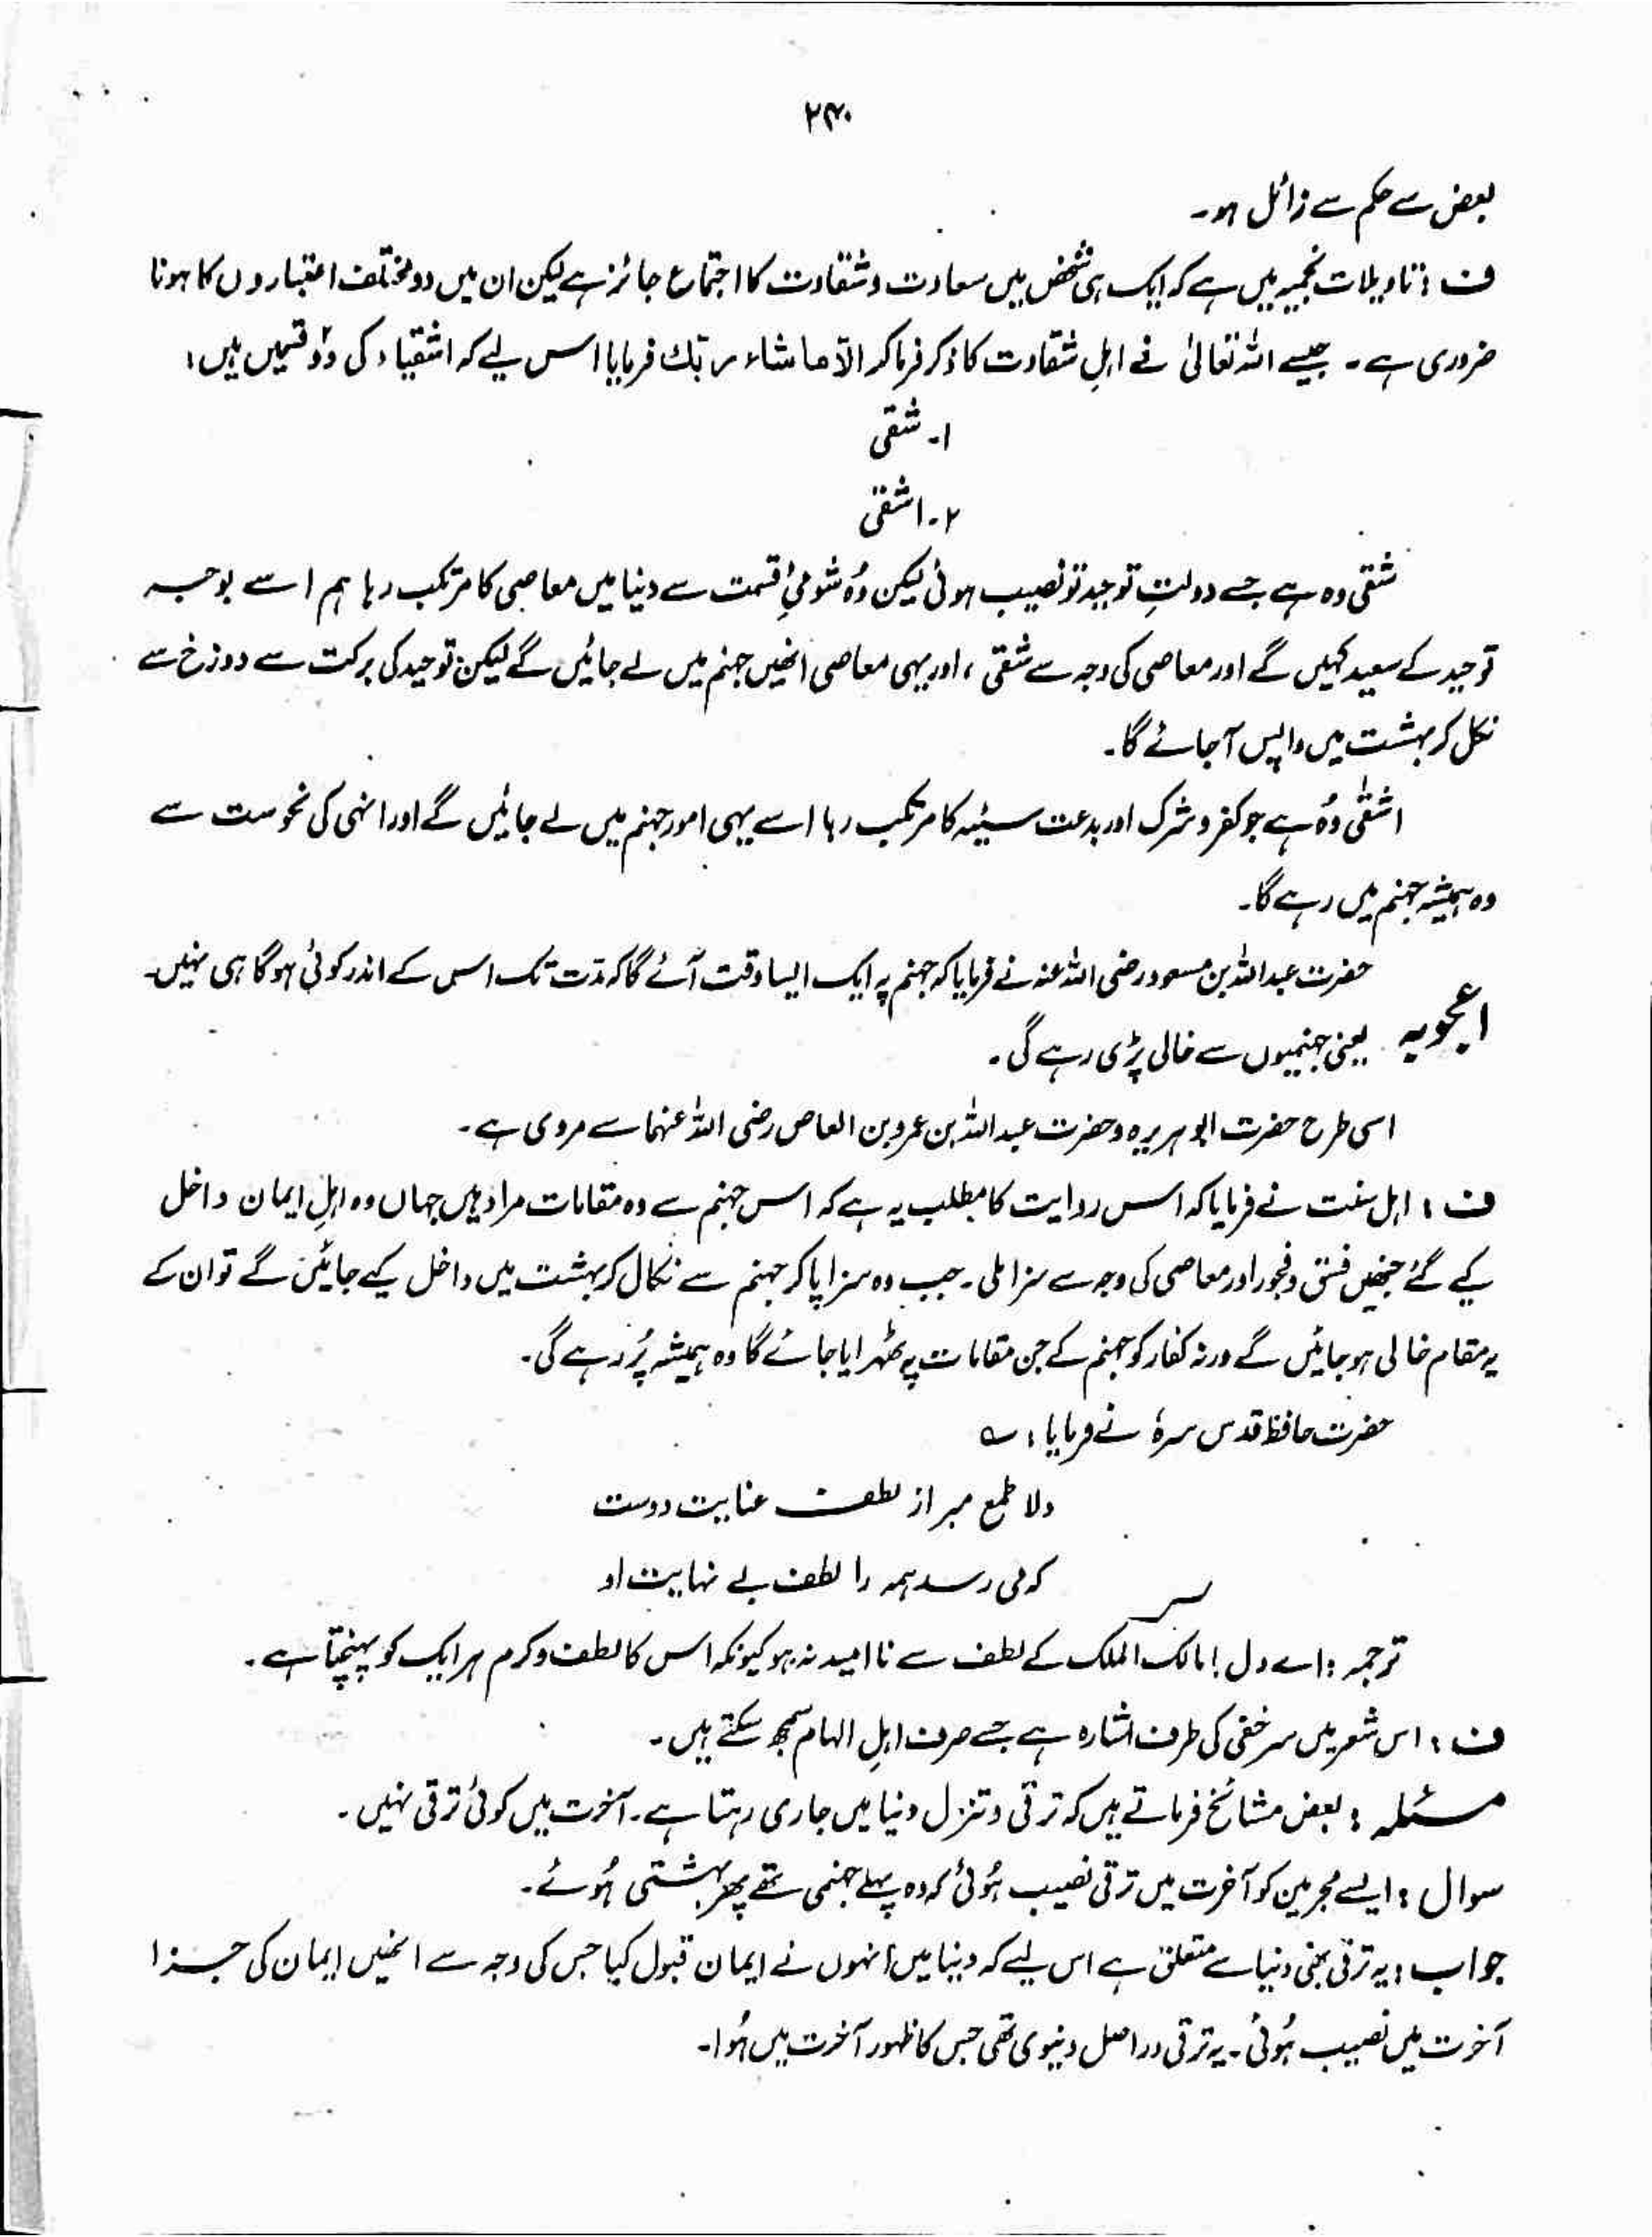 ۲۴۰
بعض سے حکم سے زائل ہو۔
ف : تاویلات نجمیہ میں ہے کہ ایک ہی شخص میں سعادت و شقاوت کا اجتماع جائز ہے لیکن ان میں دو مختلف اعتباروں کا ہونا
ضروری ہے ۔ جیسے اللہ تعالیٰ نے اہلِ شقاوت کا ذکر فرما کر الّا ما شاء ربّک فرمایا اس لیے کہ اشقیاء کی دو قسمیں ہیں :
۱۔ شقی
۲۔ اشقیٰ
شقی وہ ہے جسے دولتِ توحید تو نصیب ہوئی لیکن وُہ شومیِٔ قسمت سے دنیا میں معاصی کا مرتکب رہا ہم اسے بوجہ
توحید کے سعید کہیں گے اور معاصی کی وجہ سے شقی ، اور یہی معاصی انھیں جہنم میں لے جائیں گے لیکن توحید کی برکت سے دوزخ سے
نکل کر بہشت میں واپس آجائے گا۔
اشقیٰ وُہ ہے جو کفر و شرک اور بدعت سیئہ کا مرتکب رہا اسے یہی امور جہنم میں لے جائیں گے اور انہی کی نحوست سے
وہ ہمیشہ جہنم میں رہے گا۔
حضرت عبداللہ بن مسعود رضی اللہ عنہ نے فرمایا کہ جہنم پہ ایک ایسا وقت آئے گا کہ مدّت تک اس کے اندر کوئی ہوگا ہی نہیں۔
اعجوبہ یعنی جہنمیوں سے خالی پڑی رہے گی ۔
اسی طرح حضرت ابوہریرہ و حضرت عبداللہ بن عمرو بن العاص رضی اللہ عنہما سے مروی ہے ۔
ف : اہل سنت نے فرمایا کہ اس روایت کا مطلب یہ ہے کہ اس جہنم سے وہ مقامات مراد ہیں جہاں وہ اہلِ ایمان داخل
کیے گئے جنھیں فسق و فجور اور معاصی کی وجہ سے سزا ملی ۔ جب وہ سزا پا کر جہنم سے نکال کر بہشت میں داخل کیے جائیں گے تو ان کے
یہ مقام خالی ہو جائیں گے ورنہ کفار کو جہنم کے جن مقامات پہ ٹھہرایا جائے گا وہ ہمیشہ پُر رہے گی۔
حضرت حافظ قدس سرہٗ نے فرمایا : ؎
دلا طمع مبر از لطف عنایت دوست
کہ می رسد ہمہ را لطف بے نہایت او
ترجمہ : اے دل ! مالک الملک کے لطف سے ناامید نہ ہو کیونکہ اس کا لطف و کرم ہر ایک کو پہنچتا ہے ۔
ف : اس شعر میں سر خفی کی طرف اشارہ ہے جسے صرف اہلِ الہام سمجھ سکتے ہیں ۔
مسئلہ : بعض مشائخ فرماتے ہیں کہ ترقی و تنزل دنیا میں جاری رہتا ہے ۔ آخرت میں کوئی ترقی نہیں ۔
سوال : ایسے مجرمین کو آخرت میں ترقی نصیب ہُوئی کہ وہ پہلے جہنمی تھے پھر بہشتی ہُوئے۔
جواب : یہ ترقی بھی دنیا سے متعلق ہے اس لیے کہ دنیا میں انہوں نے ایمان قبول کیا جس کی وجہ سے انھیں ایمان کی جزا
آخرت میں نصیب ہُوئی ۔ یہ ترقی دراصل دنیوی تھی جس کا ظہور آخرت میں ہُوا۔